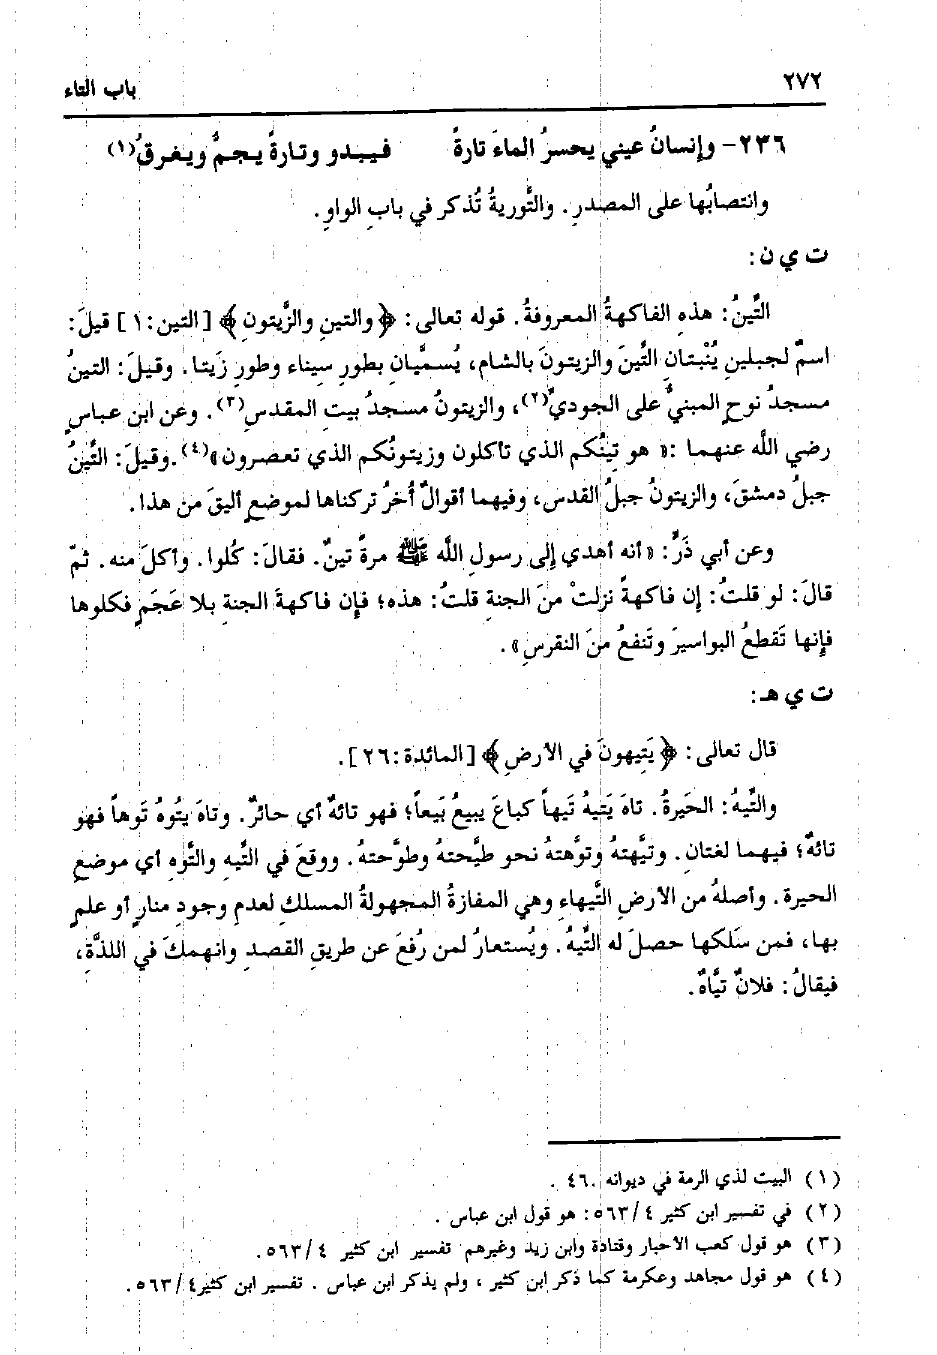 ٢٧٢ باب التاء
٢٣٦- وإنسانُ عيني يحسرُ الماءَ تارةً فيبدو وتارةً يجمُّ ويغرقُ(١)
وانتصابُها على المصدرِ. والتَّوريةُ تُذكر في بابِ الواوِ.
ت ي ن:
التِّينُ: هذهِ الفاكهةُ المعروفةُ. قوله تعالى: ﴿والتينِ والزَّيتونِ﴾ [التين:١] قيلَ:
اسمٌ لجبلينِ يُنْبتانِ التِّينَ والزيتونَ بالشام، يُسمَّيانِ بطورِ سِيناء وطورِ زَيتا. وقيلَ: التينُ
مسجدُ نوحٍ المبنيُّ على الجوديِّ(٢)، والزيتونُ مسجدُ بيتِ المقدسِ(٣). وعن ابن عباسٍ
رضي اللَّه عنهما :« هو تينُكم الذي تأكلون وزيتونُكم الذي تعصرون»(٤).وقيلَ: التِّينُ
جبلُ دمشقَ، والزيتونُ جبلُ القدس، وفيهما أقوالٌ أُخرُ تركناها لموضعٍ أليقَ من هذا.
وعن أبي ذَرٍّ: « أنه أهدي إلى رسولِ اللَّه ﷺ مرةً تينٌ. فقالَ: كُلوا. وأكلَ منه. ثمّ
قالَ: لو قلتُ: إن فاكهةً نزلتْ منَ الجنةِ قلتُ: هذه؛ فإن فاكهةَ الجنةِ بلا عَجَمٍ فكلوها
فإنها تَقطعُ البواسيرَ وتَنفعُ منَ النقرسِ» .
ت ي هـ:
قال تعالى: ﴿ يَتِيهونَ في الأرضِ﴾ [المائدة:٢٦].
والتِّيهُ: الحَيرةُ. تاهَ يَتيهُ تَيهاً كباعَ يبيعُ بَيعاً؛ فهو تائهٌ أي حائرٌ. وتاهَ يَتُوهُ تَوهاً فهو
تائهٌ؛ فيهما لغتانِ. وتيَّهتهُ وتوَّهتهُ نحو طيَّحتهُ وطوَّحتهُ. ووقعَ في التِّيهِ والتَّوهِ أي موضعِ
الحيرة. وأصلهُ من الأرضِ التَّيهاءِ وهي المفازةُ المجهولةُ المسلكِ لعدمِ وجودِ منارٍ أو علمٍ
بها، فمن سَلكها حصلَ له التِّيهُ. ويُستعارُ لمن رُفعَ عن طريقِ القصدِ وانهمكَ في اللذَّةِ،
فيقالُ: فلانٌ تيَّاهٌ.
(١) البيت لذي الرمة في ديوانه ٤٦٠ .
(٢) في تفسير ابن كثير ٤ /٥٦٣: هو قول ابن عباس .
(٣) هو قول كعب الأحبار وقتادة وابن زيد وغيرهم تفسير ابن كثير ٤ /٥٦٣.
(٤) هو قول مجاهد وعكرمة كما ذكر ابن كثير ، ولم يذكر ابن عباس . تفسير ابن كثير٤ /٥٦٣.